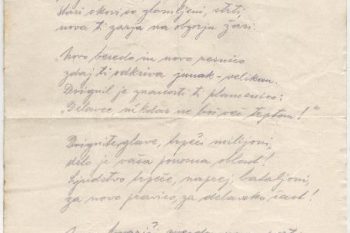 Stari okovi so zlomljeni, strti,
nova ti zarja na obzorju žari.
Novo besedo in novo pesmico
zdaj ti odkriva junak-velikan.
Dvignil je znanosti ti plamenico:
Delavec nikdar ne bo več teptan!"
Dvignite glave, trpeči milijoni,
delo je vaša ponosna oblast!
Ljudstvo trpeče, naprej, bataljoni,
za novo pravico, za delavsko čast!